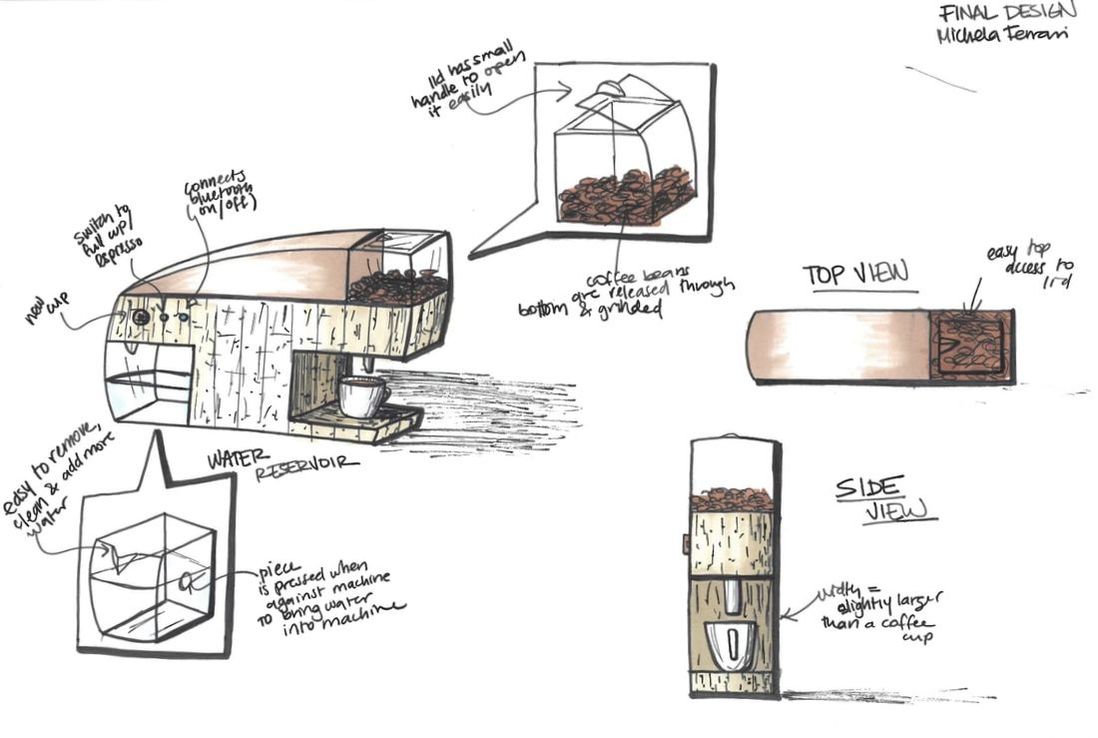 FINAL DESIGN
Michela Ferrari
lid has small
handle to open
it easily
connects
bluetooth
on/off)
switch to
full cup/
Espresso
new cup
coffee beans
are released through
bottom & grinded
TOP VIEW
easy top
access to
lid
WATER
RESERVOIR
easy to remove,
clean & add more
water
piece
is pressed when
against machine
TO bring water
into machine
SIDE
VIEW
width =
slightly larger
than a coffee
cup